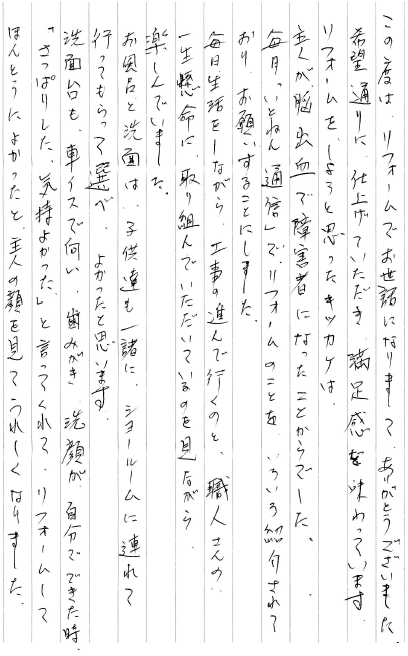 この度は、リフォームでお世話になりまして、ありがとうございました。
希望通りに仕上げていただき、満足感を味わっています。
リフォームを、しようと思ったキッカケは、
主人が、脳出血で障害者になったことからでした。
毎月、「いとねん通信」で、リフォームのことを、いろいろ紹介されて
おり、お願いすることにしました。
毎日生活をしながら、工事の進んで行くのと、職人さんの
一生懸命に、取り組んでいただいているのを見ながら
楽しんでいました。
お風呂と洗面は、子供達も一諸に、ショールームに連れて
行ってもらって選べ、よかったと思います。
洗面台も、車イスで向い、歯みがき、洗顔が、自分でできた時、
「さっぱりした、気持よかった」と言ってくれて、リフォームして
ほんとうによかったと、主人の顔を見てうれしくなりました。